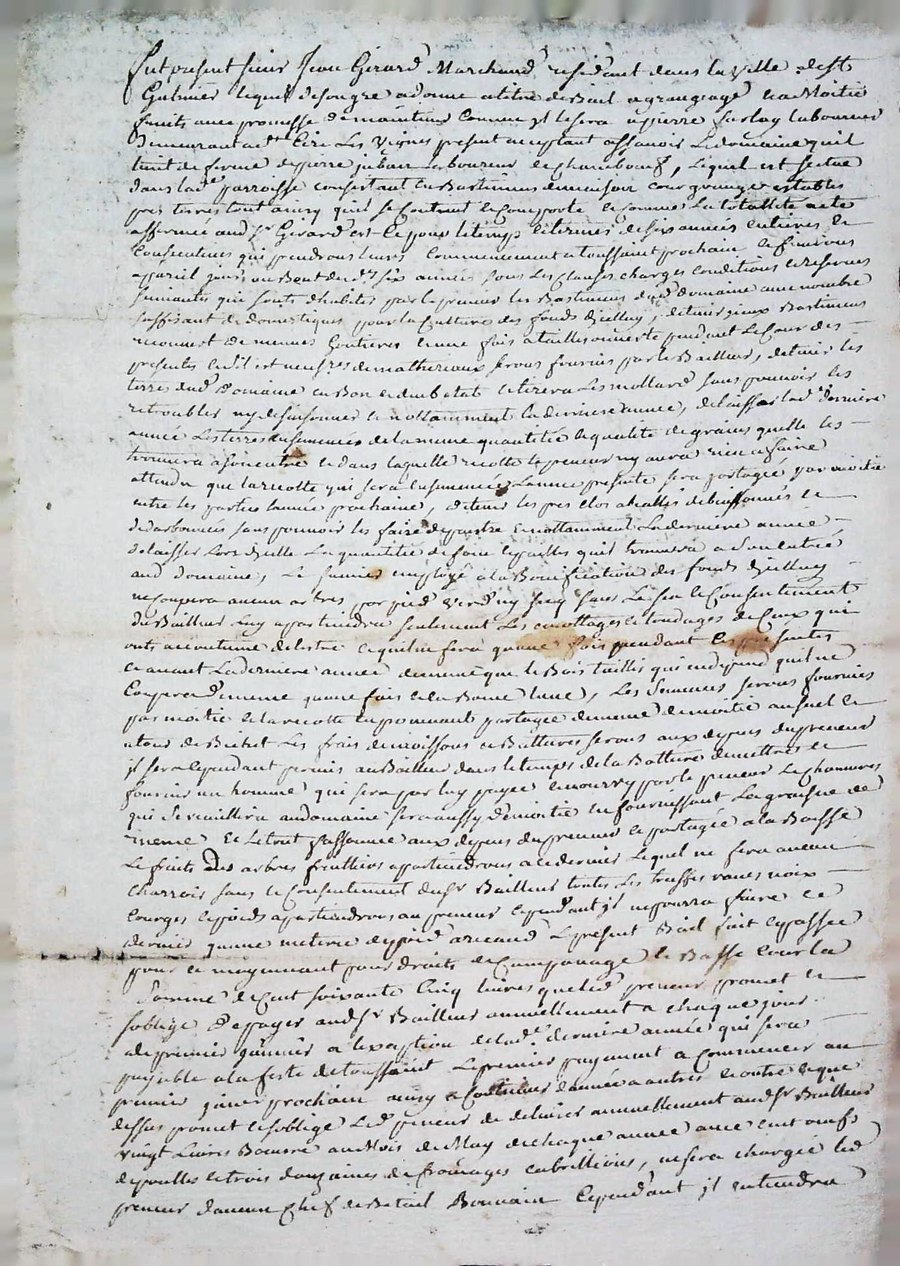 fut present sieur Jean Girard Marchand residant dans la ville de st
Galmier lequel de son gre a donne a titre de Bail a grangeage et a Moitié
fruits avec promesse de maintenir Comme yl le sera a pierre laboureur
Demeurant a Les Vignes present acceptant assavoir Le domaine quil
tient de ferme de pierre laboureur de , Lequel est scitue
dans lad.e parroisse consistant en Bastiments de maison cour grange estables
pres terres tout ainsy quil se Contient et Comporte et comme La totallité a ete
affermee aud sr Girard et ce pour le temps et terme de six années entieres et
Consecutives qui prendront leurs Commencement a toussaint prochain et finiront
a pareil jour au Bout desd. six années sous Les Clauses charges conditions et reserves
suivantes qui sont d'habiter par le preneur les Bastiments dud domaine avec nombre
suffisant de domestiques pour la Culture des fonds d'icelluy, de tenir yceux Bastiments
recouvert de menues Goutieres et une fois a taille ouverte pendant Le Cour des
presentes et s'il est necess.re de matheriaux seront fournis par le Bailleur, de tenir les
terres dud Domaine en Bon et deub etat et tirera Les mollard sans pouvoir les
retroubler ny dessaisonner et nottamment la derniere année, de laisser lad.e derniere
année Les terres ensemencées de la meme quantitée et qualité de grains quelle les
trouvera a son entrée et dans laquelle recotte le preneur ny aura rien a faire
attendu que la recotte qui sera ensemencée Lannee presente sera partagée par moitié
entre les parties lannee prochaine, de tenir les pres clos de buissonnés et
derboures sans pouvoir les faire depaitre et nottamment La derniere année
de laisser Lors dicelle La quantitée de foin et pailles quil trouvera a Son entrée
aud Domaine, Le fumier employé a la Bonification des fonds dicelluy
ne Coupera aucun arbres par pied verd ny sec sans Le sceu le Consentement
du Bailleur Luy apartiendra seulement Les emottages et tondages de Ceux qui
ont accoutume de lestre ce quil ne fera quune fois pendant les presentes
et avant La derniere année de meme que le Bois taillis qui en depend quil ne
Coupera de meme quune fois et a la Bonne lune, Les Semences seront fournies
par moitié et la recotte en provenant partagée de meme de moitié au fuel et
alour de Bichet Les frais de moissons et Battures seront aux depens du preneur
jl sera cependant permis au Bailleur dans le temps de la Batture de mettre et
fournir un homme qui sera par luy payée et nourry par le preneur Le chanvres
qui Se receuillira au domaine sera aussy de moitié en fournissant La graisne de
meme et Le tout faconnée aux depens du preneur et partagée a la Baisse
Le fruits des arbres fruitiers apartiendront a ce dernier Lequel ne fera aucun
charrois sans le Consentement du sr Bailleur toutes Les truffes raves noix
Courges et poids apartiendront au preneur cependant jl ne pourra faire ce
dernier quune meterée de poids Le present Bail fait et passée
pour et moyennant pour droits de Champonage et Basse Cour la
Somme de Cent soixante Cinq livres que led preneur promet et
soblige de payer aud sr Bailleur annuellement a chaque jour
de premier janvier a lexeption de lad.e derniere année qui sera
payable a la feste de toussaint Le premier payement a Commencer au
premier janvier prochain ainsy a Continuer dannée a autres et outre ce que
dessus promet et soblige Led preneur de delivrer annuellement aud sr Bailleur
vingt Livres Beurre au Mois de May de chaque année avec Cent oeufs
de poulles et trois douzaines de fromages cabrillions, ne sera chargée led
preneur daucun chef de Betail Bouvain Cependant jl entiendra